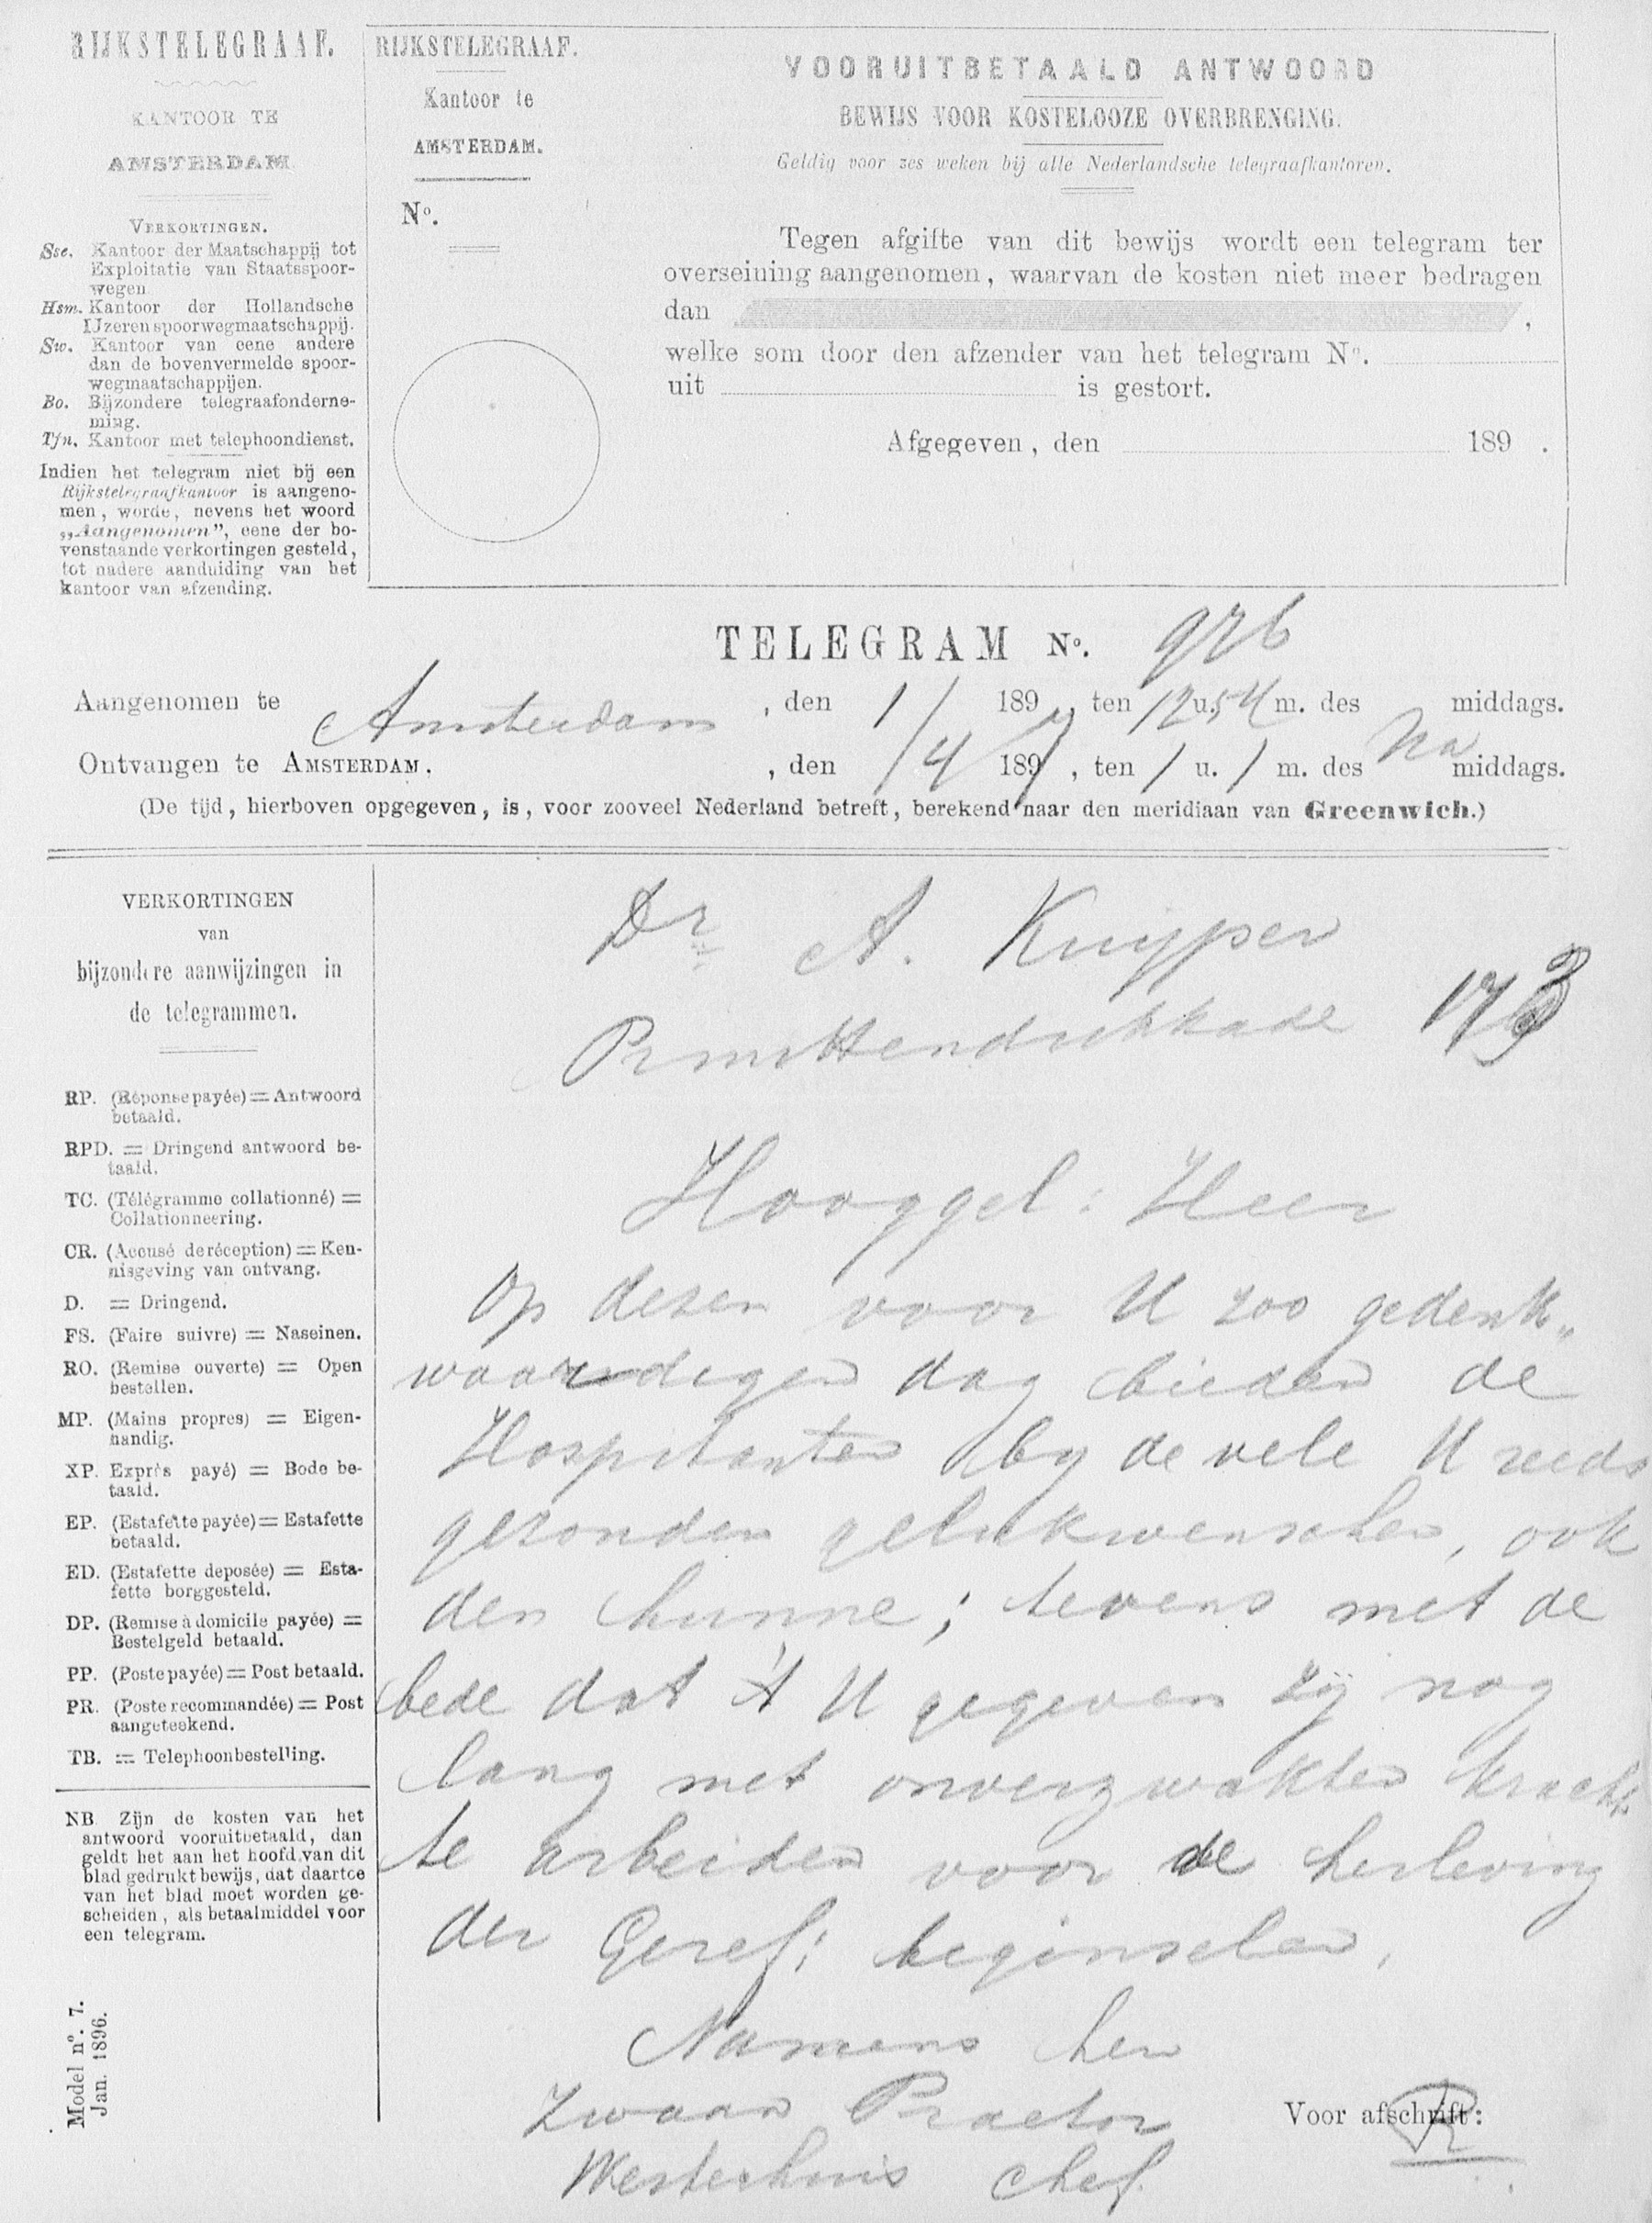 RIJKSTELEGRAAF.
KANTOOR TE
AMSTERDAM
VERKORTINGEN.
Sse. Kantoor der Maatschappij tot
Exploitatie van Staatsspoor-
wegen
Hsm. Kantoor der Hollandsche
IJzerenspoorwegmaatschappij.
Sw. Kantoor van eene andere
dan de bovenvermelde spoor-
wegmaatschappijen.
Bo. Bijzondere telegraafonderne-
ming.
Tfn. Kantoor met telephoondienst.
Indien het telegram niet bij een
Rijkstelegraafkantoor is aangeno-
men, worde, nevens het woord
„Aangenomen”, eene der bo-
venstaande verkortingen gesteld,
tot nadere aanduiding van het
kantoor van afzending.
RIJKSTELEGRAAF.
Kantoor te
AMSTERDAM.
No.
VOORUITBETAALD ANTWOORD
BEWIJS VOOR KOSTELOOZE OVERBRENGING.
Geldig voor zes weken bij alle Nederlandsche telegraafkantoren.
Tegen afgifte van dit bewijs wordt een telegram ter
overseining aangenomen, waarvan de kosten niet meer bedragen
dan ,
welke som door den afzender van het telegram No.
uit is gestort.
Afgegeven, den 189 .
TELEGRAM No. 976
Aangenomen te Amsterdam, den 1/ 189 , ten 12 u. 54 m. des middags.
Ontvangen te AMSTERDAM. , den 1/4 1897, ten 1 u. 1 m. des Na middags.
(De tijd, hierboven opgegeven, is, voor zooveel Nederland betreft, berekend naar den meridiaan van Greenwich.)
VERKORTINGEN
van
bijzondere aanwijzingen in
de telegrammen.
RP. (Réponse payée) = Antwoord
betaald.
RPD. = Dringend antwoord be-
taald.
TC. (Télégramme collationné) =
Collationneering.
CR. (Accusé de réception) = Ken-
nisgeving van ontvang.
D. = Dringend.
FS. (Faire suivre) = Naseinen.
RO. (Remise ouverte) = Open
bestellen.
MP. (Mains propres) = Eigen-
handig.
XP. Exprès payé) = Bode be-
taald.
EP. (Estafette payée) = Estafette
betaald.
ED. (Estafette deposée) = Esta-
fette borggesteld.
DP. (Remise à domicile payée) =
Bestelgeld betaald.
PP. (Poste payée) = Post betaald.
PR. (Poste recommandée) = Post
aangeteekend.
TB. = Telephoonbestelling.
NB. Zijn de kosten van het
antwoord vooruitbetaald, dan
geldt het aan het hoofd van dit
blad gedrukt bewijs, dat daartoe
van het blad moet worden ge-
scheiden, als betaalmiddel voor
een telegram.
Model no. 7.
Jan. 1896.
Dr A. Kuyper
Prins Hendrikkade 173
Hooggel: Heer
Op dezen voor U zoo gedenk„
waardigen dag bieden de
Hospitanten by de vele U reeds
gezonden gelukwenschen, ook
den hunne; tevens met de
bede dat 't U gegeven zij nog
lang met onverzwakten kracht
te arbeiden voor de herleving
der Geref: beginselen,
Namens hen
Zwaan Praetor
Westerhuis Chef.
Voor afschrift: R